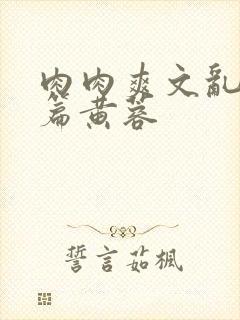 肉肉爽文亂
篇黄蓉
誓言茹楓